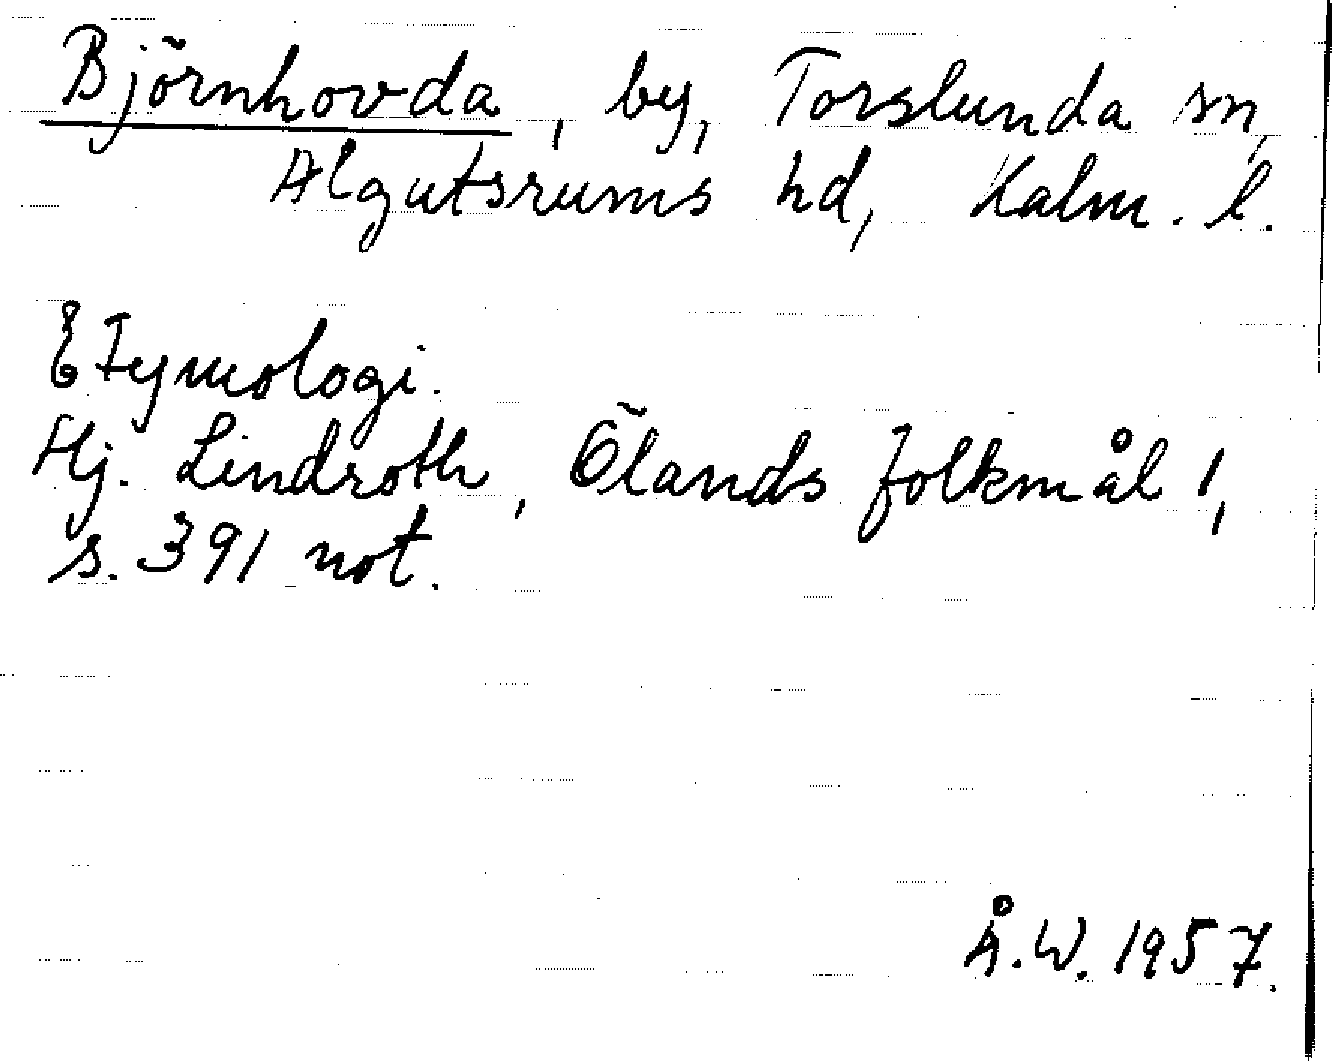 Björnhovda, by, Torslunda sn,
Algutsrums hd, Kalm. l.
Etymologi.
Hj. Lindroth, Ölands folkmål 1,
s. 391 not.
Å.W. 1957.